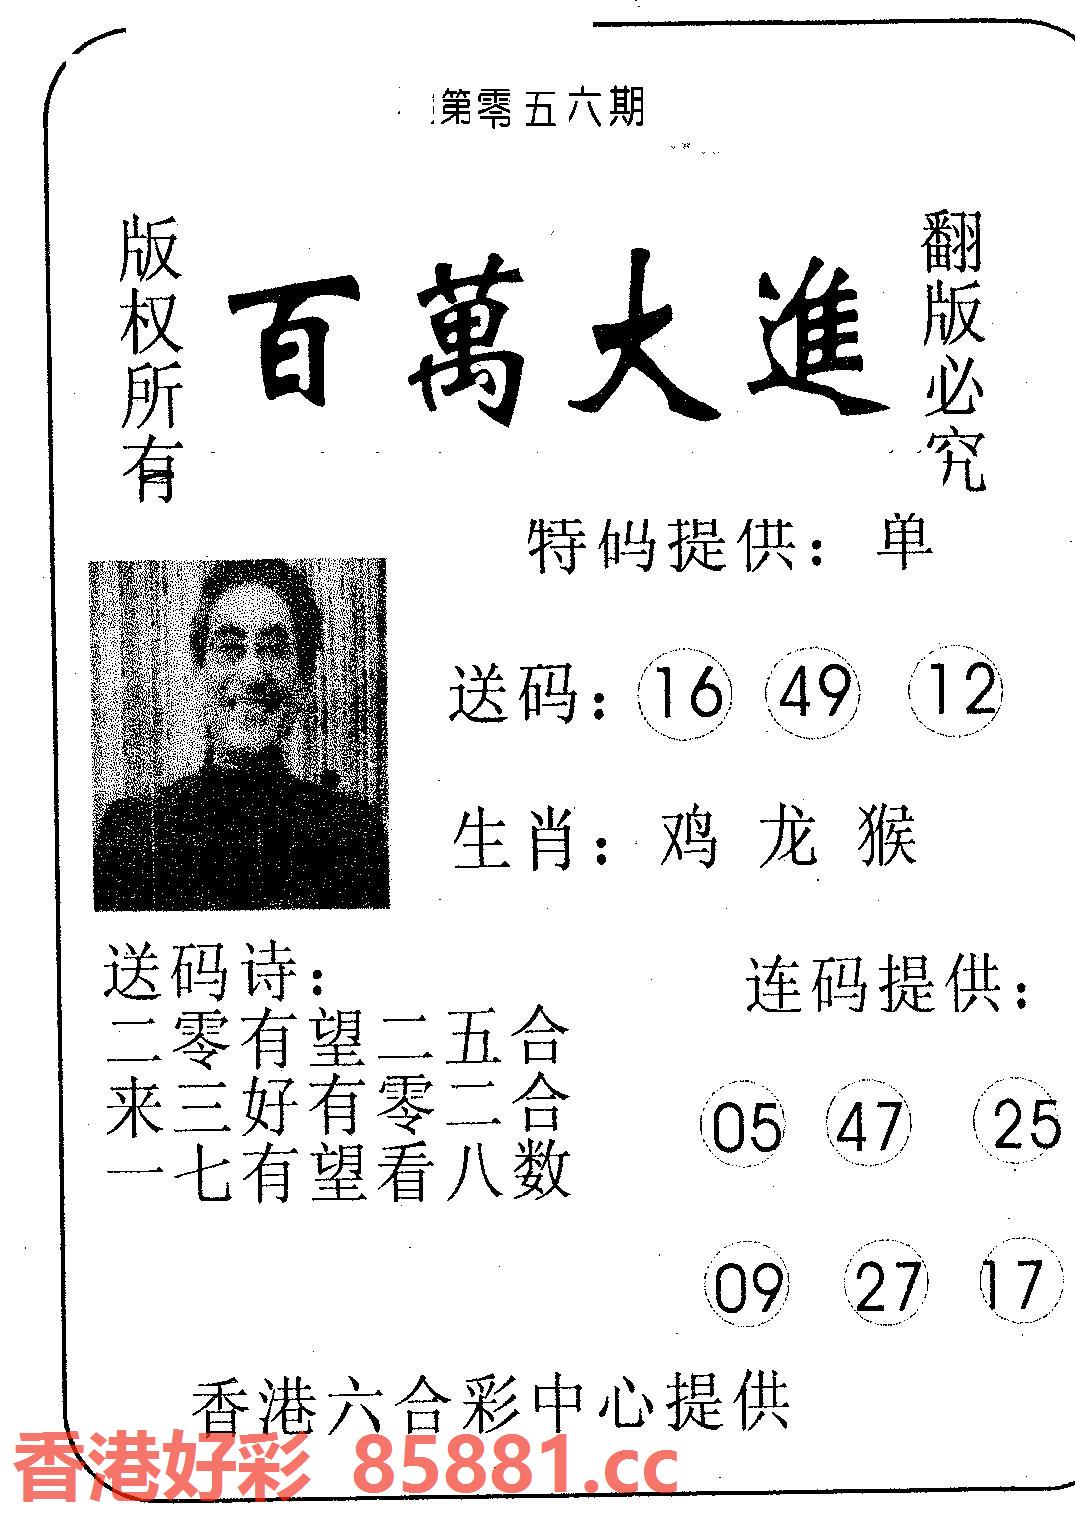 第零五六期
版权所有
百萬大進
翻版必究
特码提供：单
送码：16 49 12
生肖：鸡 龙 猴
送码诗：
二零有望二五合
来三好有零二合
一七有望看八数
连码提供：
05 47 25
09 27 17
香港六合彩中心提供
香港好彩 85881.cc